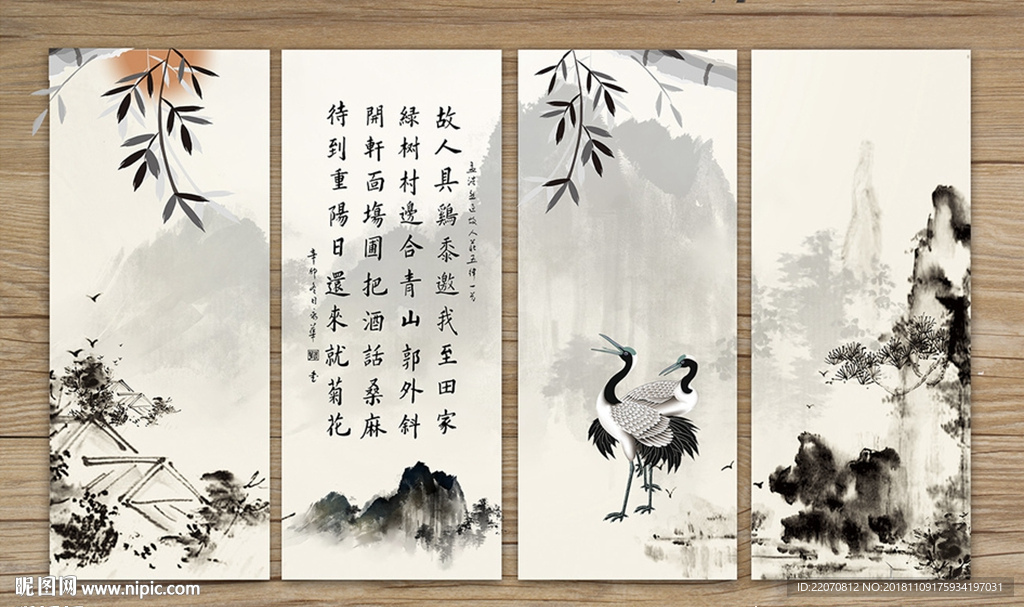 孟浩然過故人莊五律一首
故人具鷄黍邀我至田家
緑树村邊合青山郭外斜
開軒面塲圃把酒話桑麻
待到重陽日還來就菊花
辛卯冬日
昵图网 www.nipic.com
ID:22070812 NO:20181109175934197031